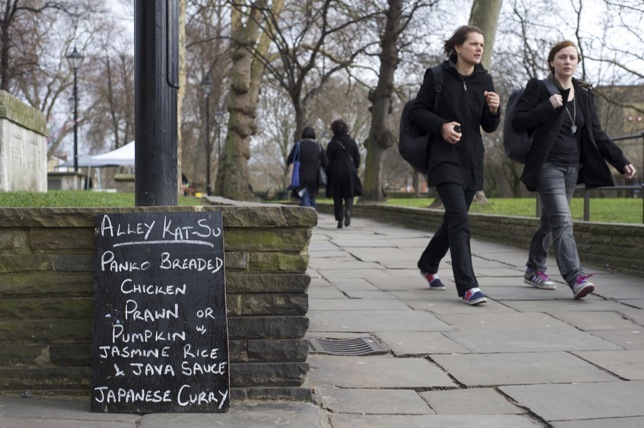 ALLEY KAT-SU
PANKO BREADED
CHICKEN
- PRAWN OR
PUMPKIN -
JASMINE RICE
& JAVA SAUCE
JAPANESE CURRY